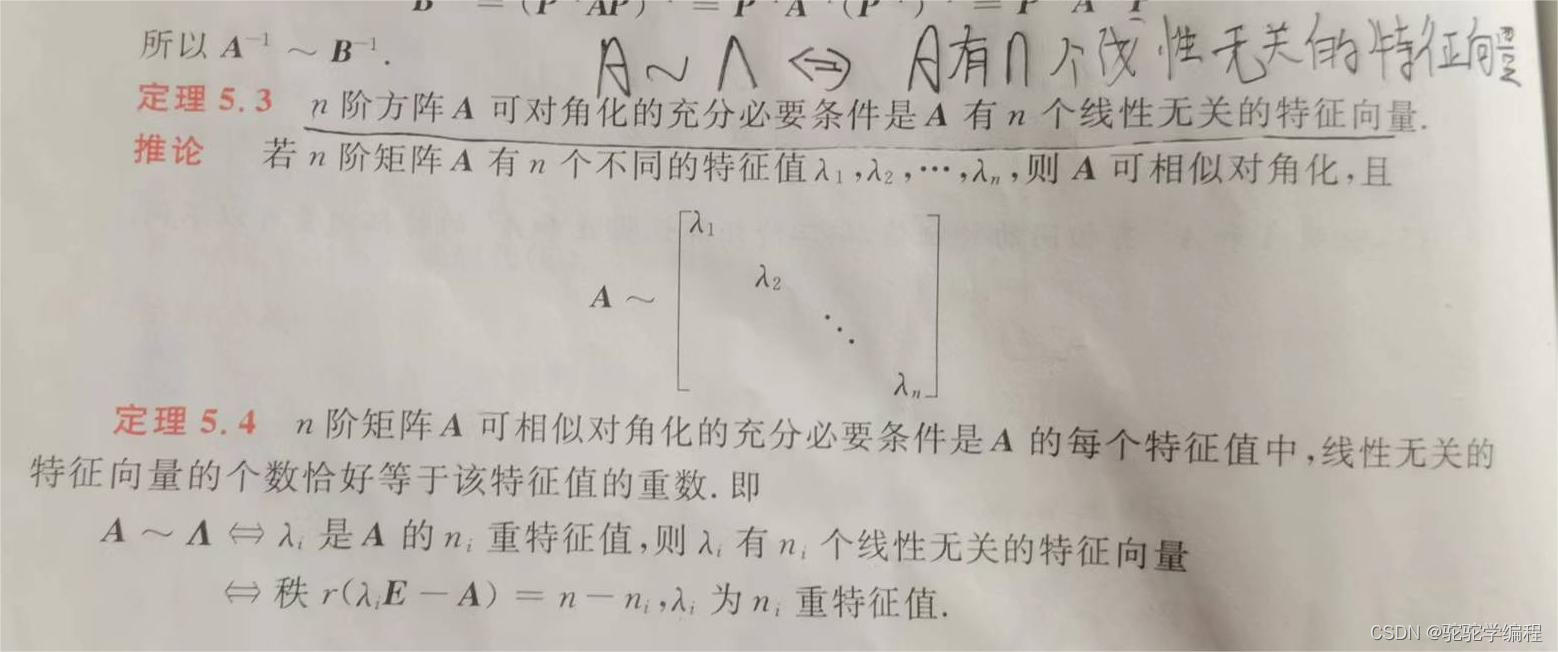 B = (P AP) = P A (P ) = P A P
所以 A⁻¹ ~ B⁻¹.
A ~ Λ ⇔ A有n个线性无关的特征向量
定理 5.3 n 阶方阵 A 可对角化的充分必要条件是 A 有 n 个线性无关的特征向量.
推论 若 n 阶矩阵 A 有 n 个不同的特征值 λ₁,λ₂,⋯,λₙ,则 A 可相似对角化,且
λ₁
λ₂
A ~
⋱
λₙ
定理 5.4 n 阶矩阵 A 可相似对角化的充分必要条件是 A 的每个特征值中,线性无关的
特征向量的个数恰好等于该特征值的重数.即
A ~ Λ ⇔ λᵢ 是 A 的 nᵢ 重特征值,则 λᵢ 有 nᵢ 个线性无关的特征向量
⇔ 秩 r(λᵢE − A) = n − nᵢ,λᵢ 为 nᵢ 重特征值.
CSDN @驼驼学编程